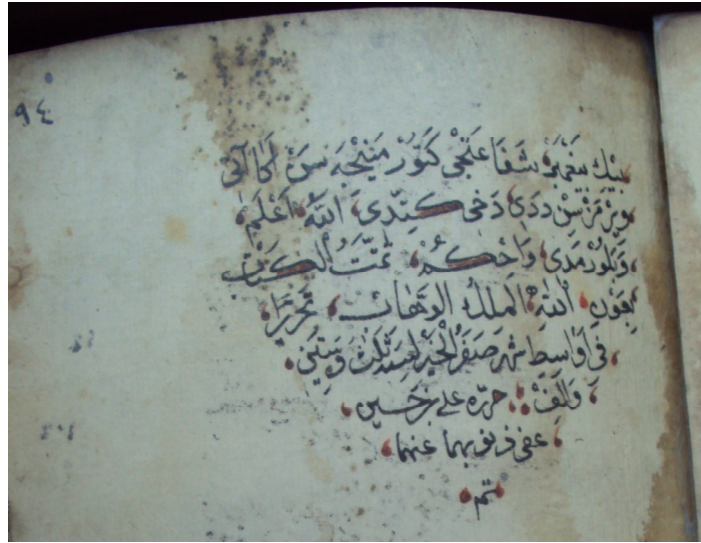 ٩٤
بيك پيغمبر شفاعتجى كتور منيجه سن اكا آنى
ويرمزسن ددى دخى كتدى الله اعلم
وبلورمدى واحكم تمت الكتاب
بعون الله الملك الوهاب تحريرا
فى اواسط شهر صفر الخير لسنة ثلاث وستين
والف حرره على بن حسين
عفى ذنوبهما عنهما
تم